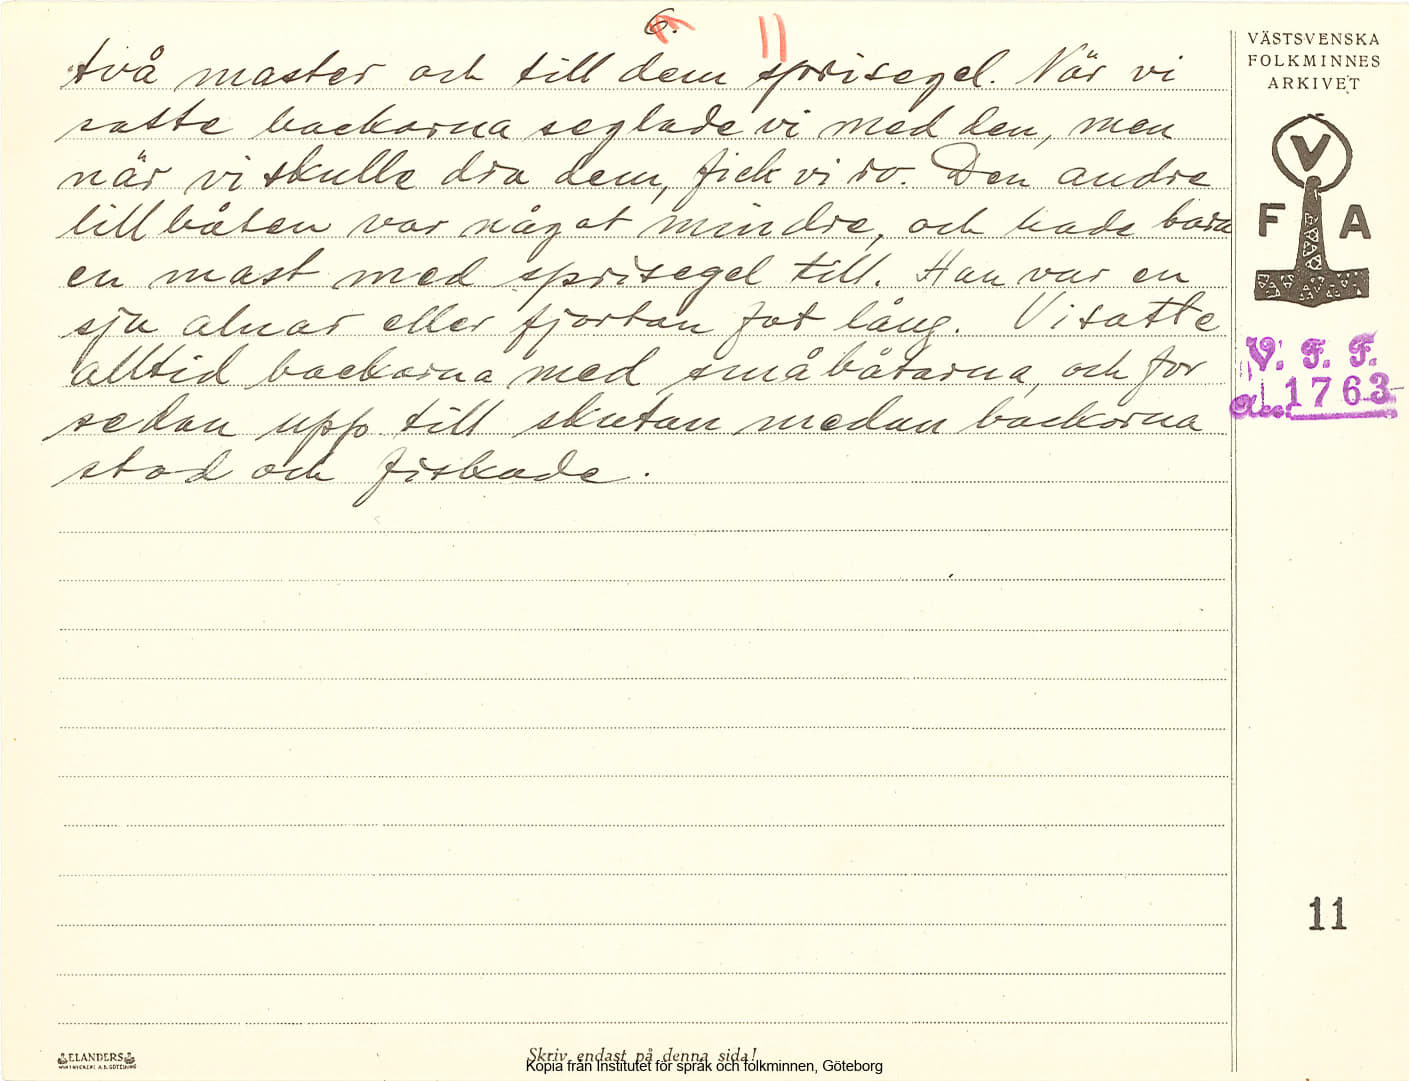 6.
11
två master och till dem sprisegel. När vi
satte backorna seglade vi med den, men
när vi skulle dra dem, fick vi ro. Den andre
lillbåten var något mindre, och hade bara
en mast med sprisegel till. Han var en
sju alnar eller fjortan fot lång. Vi satte
alltid backorna med småbåtarna, och for
sedan upp till skutan medan backorna
stod och fiskade.
VÄSTSVENSKA
FOLKMINNES
ARKIVET
V
F A
V. F. F.
Acc. 1763
11
ELANDERS
Skriv endast på denna sida!
Kopia från Institutet för språk och folkminnen, Göteborg